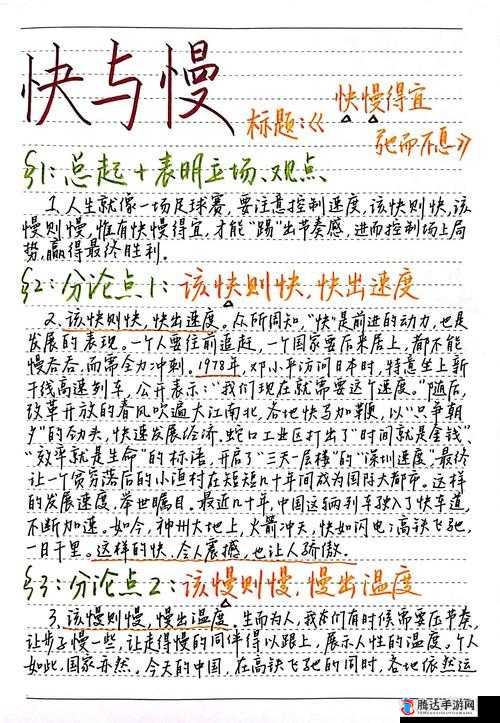 快与慢
标题:《快慢得宜
弛而不息》
§1:总起+表明立场、观点
1.人生就像一场足球赛,要注意控制速度,该快则快,该
慢则慢,惟有快慢得宜,才能“踢”出节奏感,进而控制场上局
势,赢得最终胜利。
§2:分论点1:该快则快,快出速度
2.该快则快,快出速度。众所周知,“快”是前进的动力,也是
发展的表现。一个人要往前追赶,一个国家要后来居上,都不能
慢吞吞,而需全力冲刺。1978年,邓小平访问日本时,特意坐上新
干线高速列车,公开表示:“我们现在就需要这个速度。”随后,
改革开放的春风吹遍大江南北,各地快马加鞭,以“只争朝
夕”的劲头,快速发展经济。蛇口工业区打出了“时间就是金钱”、
“效率就是生命”的标语,开启了“三天一层楼”的“深圳速度”,最终
让一个贫穷落后的小渔村在短短几十年间成为国际大都市。这样
的发展速度,举世瞩目。最近几十年,中国这辆列车驶入了快车道,
不断加速。如今,神州大地上,火箭冲天,快如闪电;高铁飞驰,
一日千里。这样的快,令人震撼,也让人骄傲。
§3:分论点2:该慢则慢,慢出温度
3.该慢则慢,慢出温度。生而为人,我们有时候需要压节奏,
让步子慢一些,让走得慢的同伴得以跟上,展示人性的温度。个人
如此,国家亦然。今天的中国,在高铁飞驰的同时,各地依然运
腾达手游网